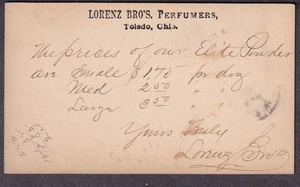 LORENZ BRO'S. PERFUMERS,
Toledo, Ohio.
The prices of our Elite Powder
are Small $1.75 pr doz
Med 2.50 " "
Large 3.50 " "
Yours Truly
Lorenz Bros